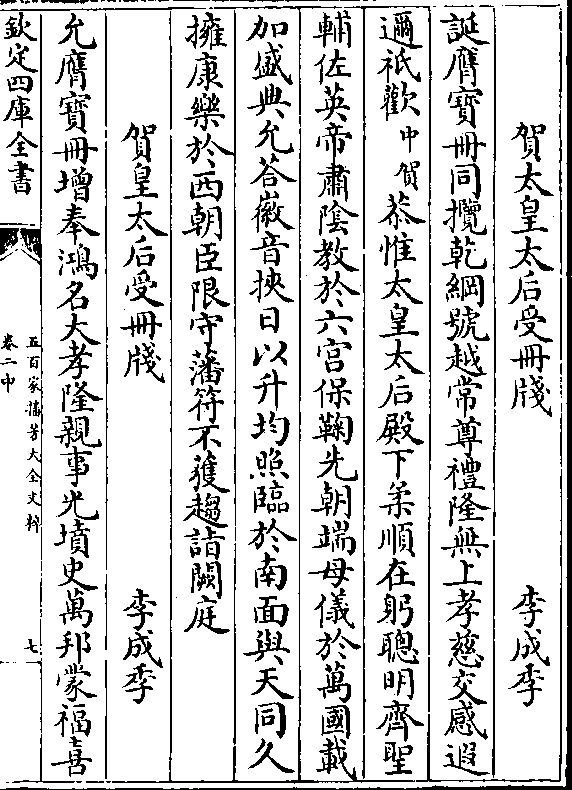 賀太皇太后受冊牋　李成季
誕膺寶冊同攬乾綱號越常尊禮隆無上孝慈交感遐
邇祇歡中賀恭惟太皇太后殿下柔順在躬聰明齊聖
輔佐英帝肅陰教於六宫保鞠先朝端母儀於萬國載
加盛典允荅徽音挾日以升均照臨於南面與天同久
擁康樂於西朝臣限守藩符不獲趨詣闕庭
賀皇太后受冊牋　李成季
允膺寶冊增奉鴻名大孝隆親事光墳史萬邦蒙福喜
欽定四庫全書
五百家播芳大全文粹
卷二中
七